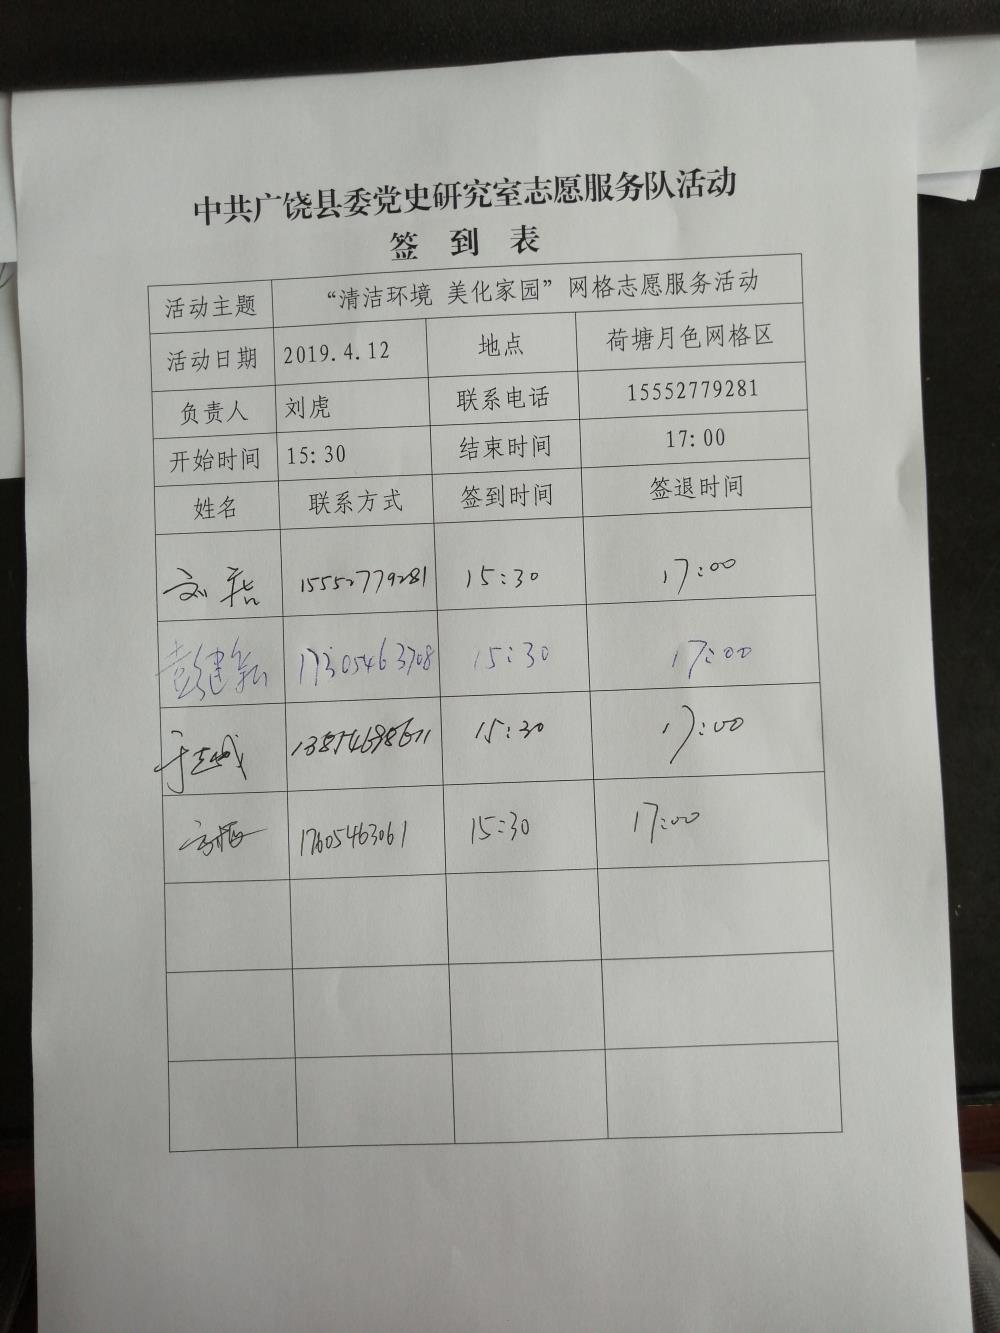 中共广饶县委党史研究室志愿服务队活动
签 到 表
活动主题 “清洁环境 美化家园”网格志愿服务活动
活动日期 2019.4.12 地点 荷塘月色网格区
负责人 刘虎 联系电话 15552779281
开始时间 15:30 结束时间 17:00
姓名 联系方式 签到时间 签退时间
刘 15552779281 15:30 17:00
彭建 17305463708 15:30 17:00
15:30 17:00
17605463061 15:30 17:00